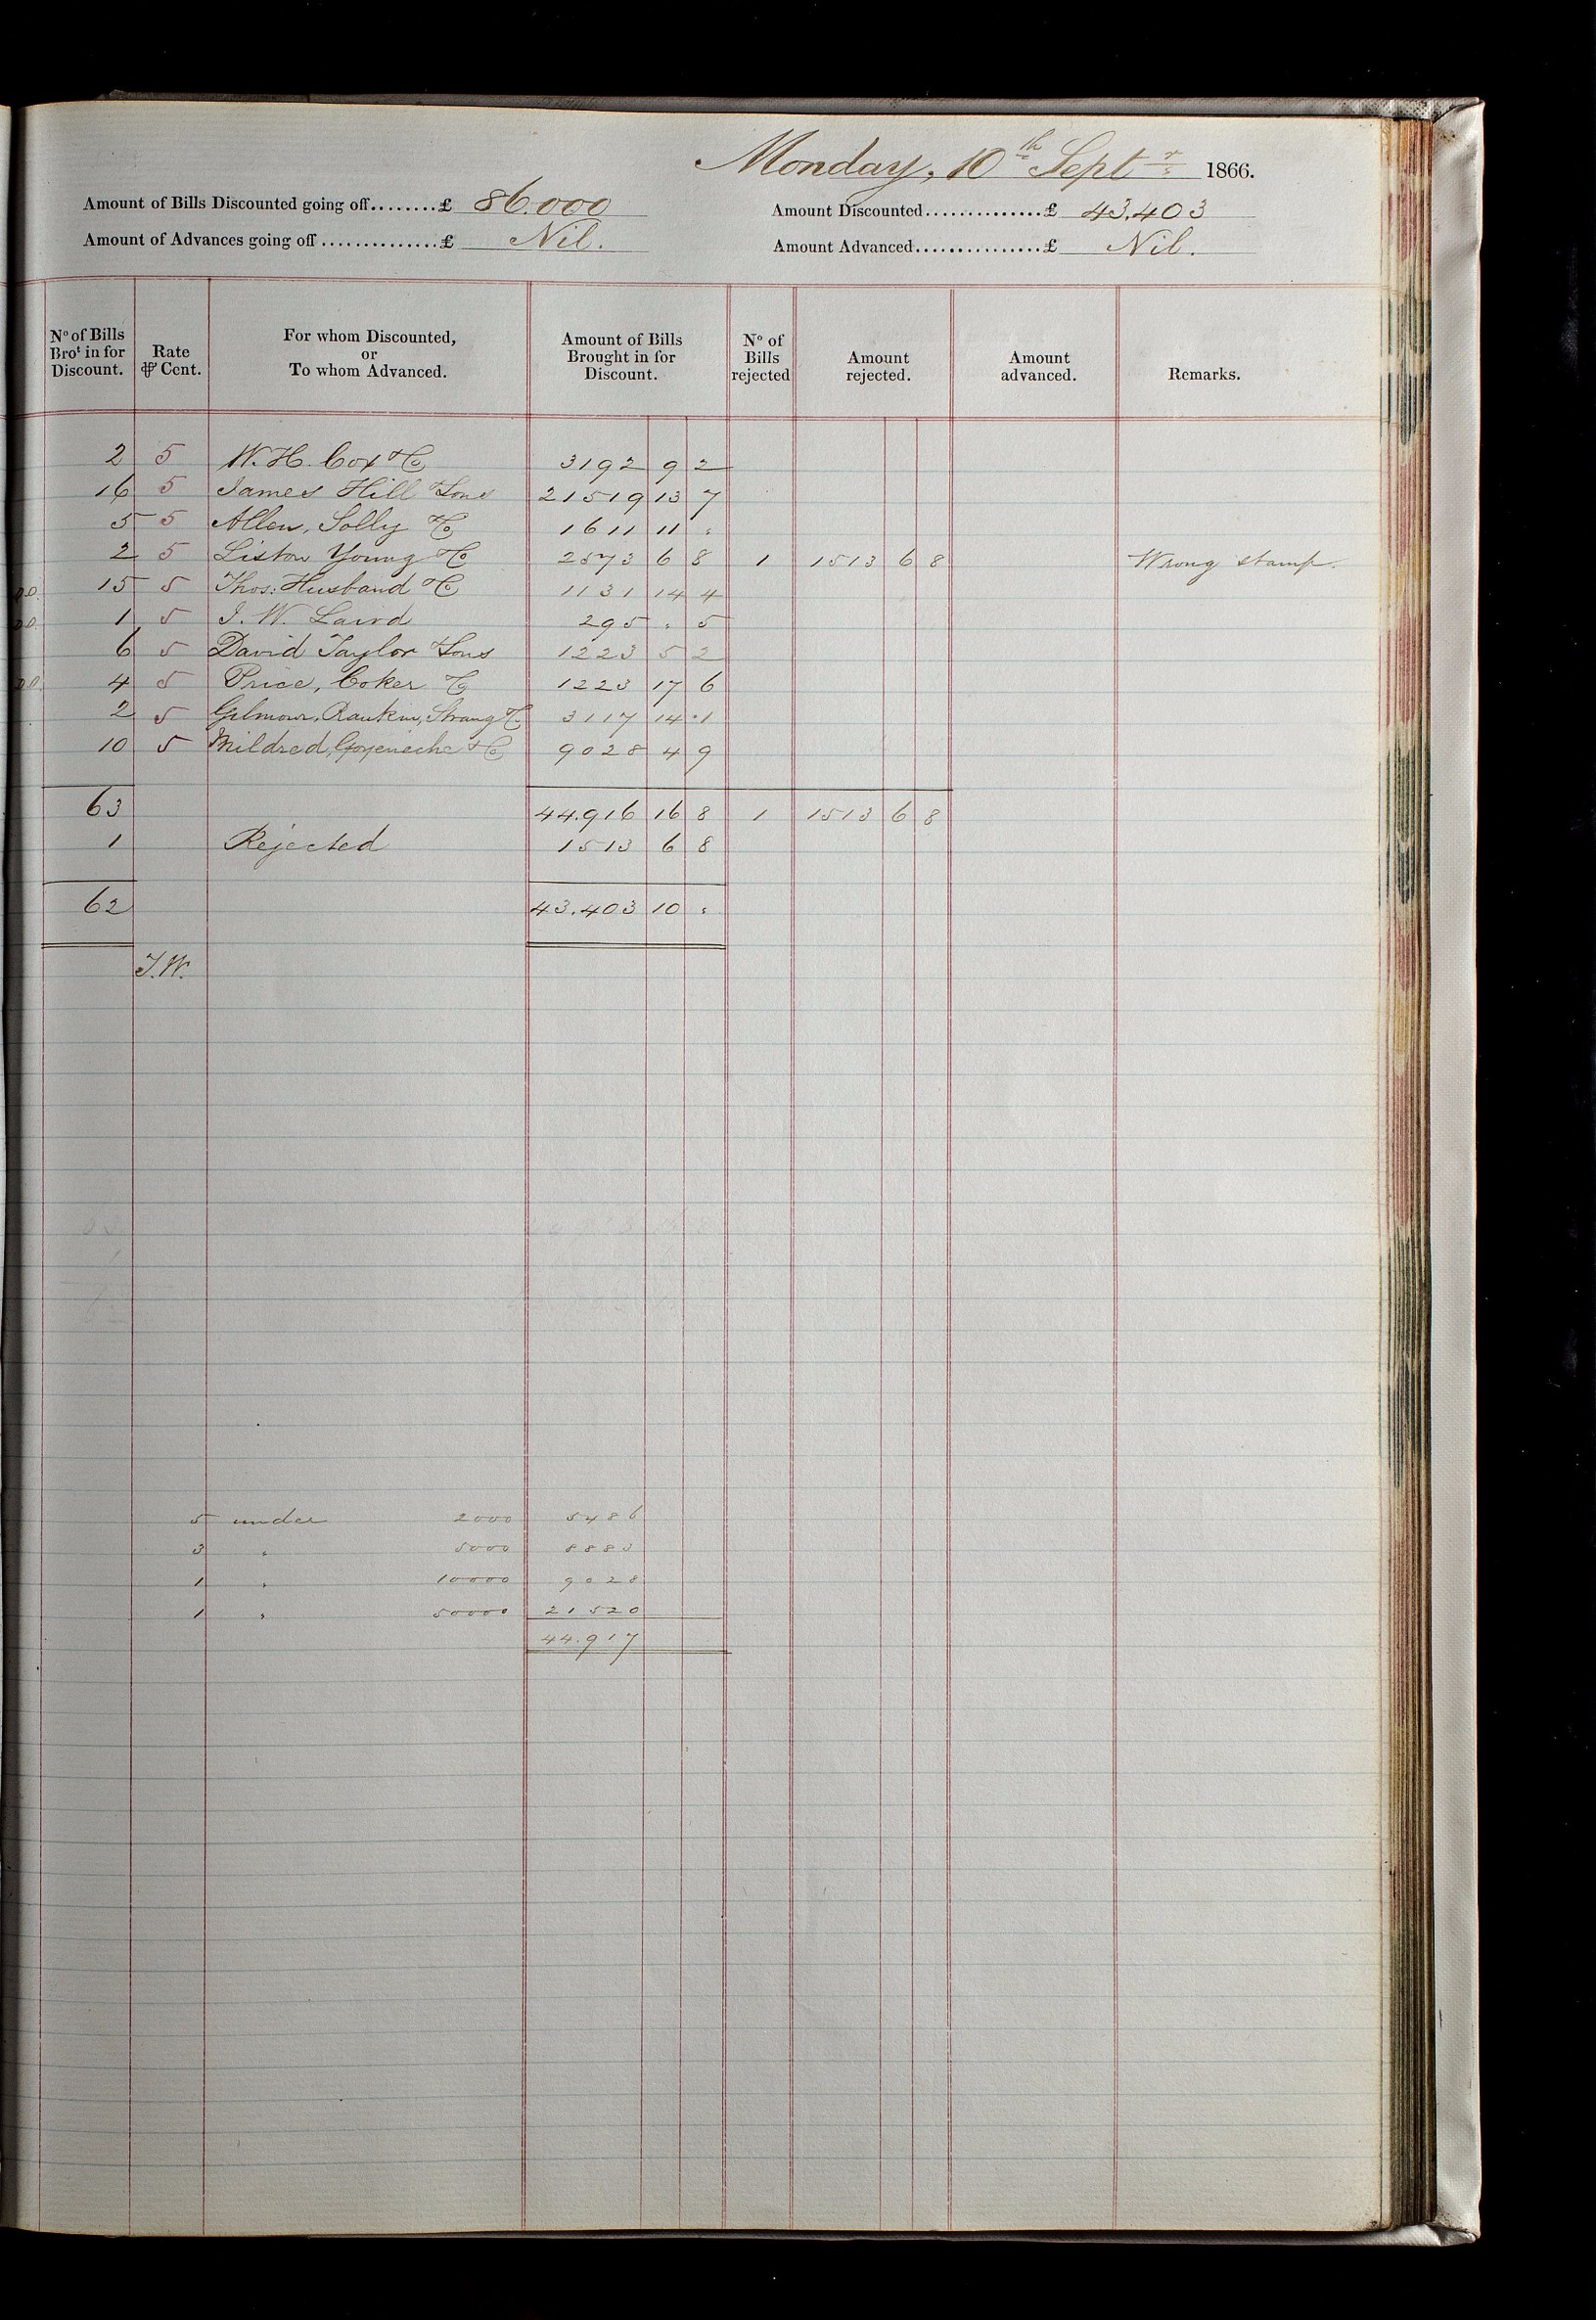 Monday, 10th Septr 1866.
Amount of Bills Discounted going off........£ 86.000 Amount Discounted..............£ 43.403
Amount of Advances going off...............£ Nil. Amount Advanced................£ Nil.
No of Bills Brot in for Discount. Rate ⅌ Cent. For whom Discounted, or To whom Advanced. Amount of Bills Brought in for Discount. No of Bills rejected Amount rejected. Amount advanced. Remarks.
2 5 W. H. Cox & Co 3192 9 2
16 5 James Hill & Sons 21519 13 7
5 5 Allen, Solly & Co 1611 11 "
2 5 Liston Young & Co 2573 6 8 1 1513 6 8 Wrong stamp.
D.O. 15 5 Thos: Husband & Co 1131 14 4
D.O. 1 5 J. W. Laird 295 " 5
6 5 David Taylor & Sons 1223 5 2
D.O. 4 5 Price, Coker & Co 1223 17 6
2 5 Gilmour, Rankin, Strang & Co 3117 14 1
10 5 Mildred, Goyeneche & Co 9028 4 9
63 44.916 16 8 1 1513 6 8
1 Rejected 1513 6 8
62 43.403 10 "
J.W.
5 under 2000 5486
3 " 5000 8883
1 " 10000 9028
1 " 50000 21520
44.917